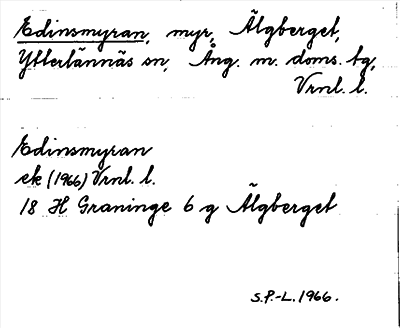 Edinsmyran, myr, Älgberget,
Ytterlännäs sn, Ång. m. doms. tg,
Vrnl. l.
Edinsmyran
ek (1966) Vrnl. l.
18 H Graninge 6 g Älgberget
S.P.-L. 1966.